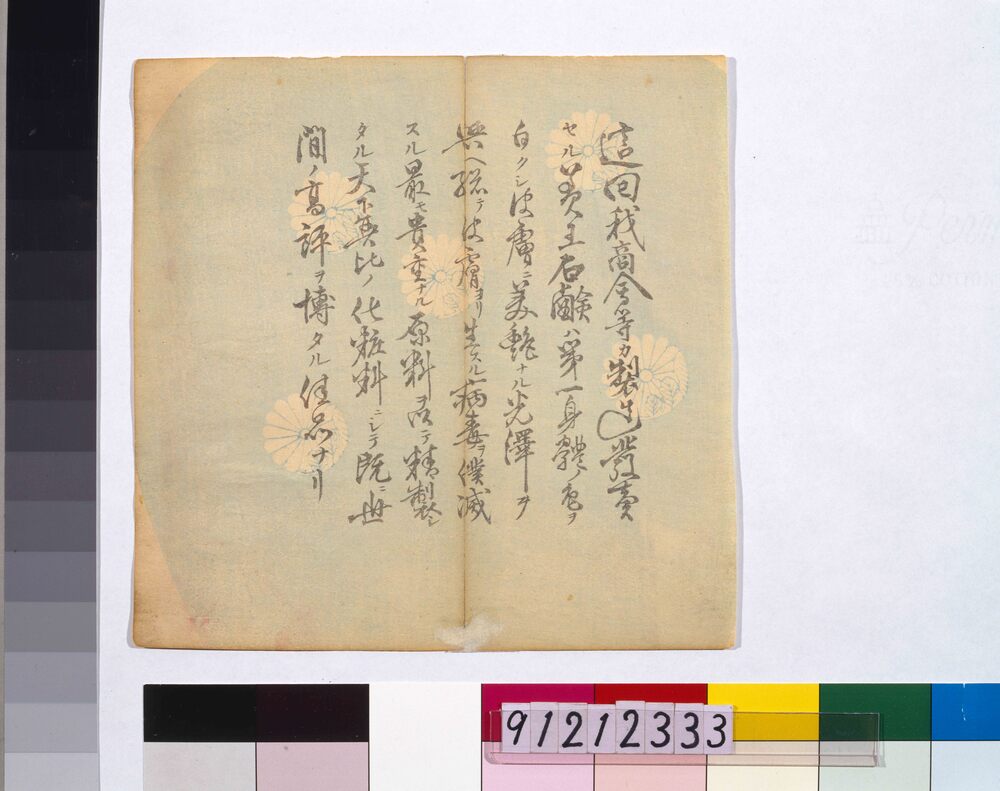 這回我商会等カ製造發賣
セル美王石鹸ハ第一身體ノ色ヲ
白クシ皮膚ニ美艶ナル光澤ヲ
與ヘ総テ皮膚ヨリ生スル病毒ヲ僕滅
スル最モ貴重ナル原料ニテ精製シ
タル天下無比ノ化粧料ニシテ既ニ世
間ノ高評ヲ博タル佳品ナリ
91212333